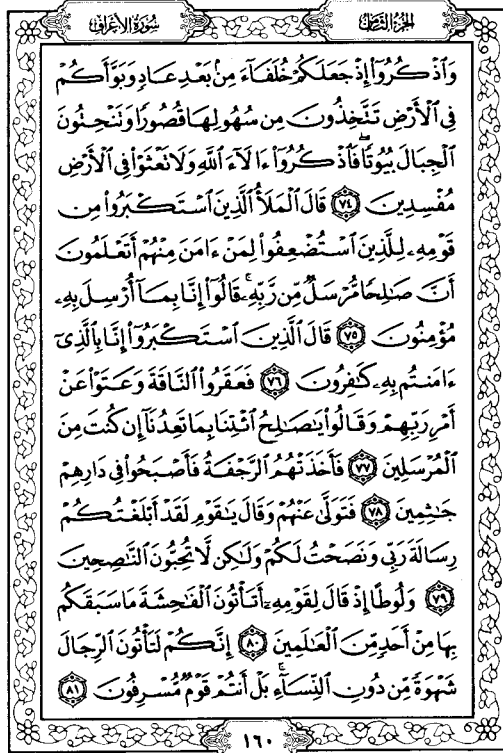 الجزء الثامن
سورة الأعراف
وَاذْكُرُوا إِذْ جَعَلَكُمْ خُلَفَاءَ مِنْ بَعْدِ عَادٍ وَبَوَّأَكُمْ
فِي الْأَرْضِ تَتَّخِذُونَ مِن سُهُولِهَا قُصُورًا وَتَنْحِتُونَ
الْجِبَالَ بُيُوتًا فَاذْكُرُوا ءَالَاءَ اللَّهِ وَلَا تَعْثَوْا فِي الْأَرْضِ
مُفْسِدِينَ ٧٤ قَالَ الْمَلَأُ الَّذِينَ اسْتَكْبَرُوا مِن
قَوْمِهِ لِلَّذِينَ اسْتُضْعِفُوا لِمَنْ ءَامَنَ مِنْهُمْ أَتَعْلَمُونَ
أَنَّ صَالِحًا مُّرْسَلٌ مِّن رَّبِّهِ قَالُوا إِنَّا بِمَا أُرْسِلَ بِهِ
مُؤْمِنُونَ ٧٥ قَالَ الَّذِينَ اسْتَكْبَرُوا إِنَّا بِالَّذِي
ءَامَنتُم بِهِ كَافِرُونَ ٧٦ فَعَقَرُوا النَّاقَةَ وَعَتَوْا عَنْ
أَمْرِ رَبِّهِمْ وَقَالُوا يَاصَالِحُ ائْتِنَا بِمَا تَعِدُنَا إِن كُنتَ مِنَ
الْمُرْسَلِينَ ٧٧ فَأَخَذَتْهُمُ الرَّجْفَةُ فَأَصْبَحُوا فِي دَارِهِمْ
جَاثِمِينَ ٧٨ فَتَوَلَّى عَنْهُمْ وَقَالَ يَاقَوْمِ لَقَدْ أَبْلَغْتُكُمْ
رِسَالَةَ رَبِّي وَنَصَحْتُ لَكُمْ وَلَكِن لَّا تُحِبُّونَ النَّاصِحِينَ
٧٩ وَلُوطًا إِذْ قَالَ لِقَوْمِهِ أَتَأْتُونَ الْفَاحِشَةَ مَا سَبَقَكُم
بِهَا مِنْ أَحَدٍ مِّنَ الْعَالَمِينَ ٨٠ إِنَّكُمْ لَتَأْتُونَ الرِّجَالَ
شَهْوَةً مِّن دُونِ النِّسَاءِ بَلْ أَنتُمْ قَوْمٌ مُّسْرِفُونَ ٨١
١٦٠